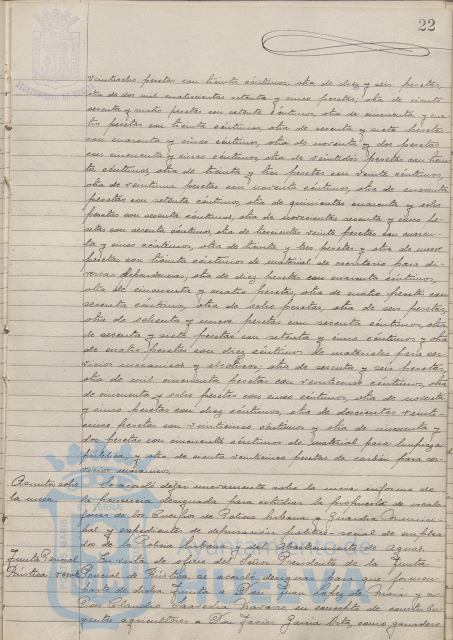 22
AYUNTAMIENTO DE
veintiseis pesetas con treinta céntimos, otra de diez y seis pesetas,
otra de dos mil cuatrocientas setenta y cinco pesetas, otra de ciento
sesenta y cuatro pesetas con setenta céntimos, otra de cincuenta y cua-
tro pesetas con treinta céntimos, otra de sesenta y siete pesetas
con cuarenta y cinco céntimos, otra de noventa y dos pesetas
con cincuenta y cinco céntimos, otra de veintidos pesetas con trein-
ta céntimos, otra de treinta y tres pesetas con veinte céntimos,
otra de veintiuna pesetas con noventa céntimos, otra de cuarenta
pesetas con setenta céntimos, otra de quinientas cuarenta y ocho
pesetas con sesenta céntimos, otra de novecientas sesenta y cinco pe-
setas con sesenta céntimos, otra de trescientas veinte pesetas con cuaren-
ta y cinco céntimos, otra de treinta y tres pesetas y otra de nueve
pesetas con treinta céntimos de material de escritorio para di-
versas dependencias; otra de diez pesetas con cuarenta céntimos,
otra de cincuenta y cuatro pesetas, otra de cuatro pesetas con
sesenta céntimos, otra de ocho pesetas, otra de seis pesetas,
otra de ochenta y nueve pesetas con sesenta céntimos, otra
de sesenta y siete pesetas con setenta y cinco céntimos y otra
de cuatro pesetas con diez céntimos de materiales para ser-
vicios mecanicos y electricos, otra de sesenta y seis pesetas,
otra de mil cincuenta pesetas con veinticinco céntimos, otra
de cincuenta y ocho pesetas con cinco céntimos, otra de noventa
y cinco pesetas con diez céntimos, otra de doscientas veinti-
cinco pesetas con veinticinco céntimos y otra de cincuenta y
dos pesetas con cincuenta céntimos de material para limpieza
pública, y otra de ciento veinticinco pesetas de carbón para ser-
vicios mismos.
Asuntos sobre
la mesa
Se acordó dejar nuevamente sobre la mesa informe de
la ponencia designada para estudiar la propuesta de
de los Cuerpos de Policia Urbana y Guardia Munici-
pal y expedientes de depuración político-social de emplea-
dos de la Policia Urbana y del Abastecimiento de Aguas.
Junta Pericial
Rústica
En vista de oficio del Señor Presidente de la Junta
Pericial de Rústica, se acordó designar para que formen
parte de dicha Junta a Don Juan Lopez de y a
Don Claudio Saavedra Navarro, en concepto de contribu-
yentes agricultores a Don Javier Garcia como ganadero